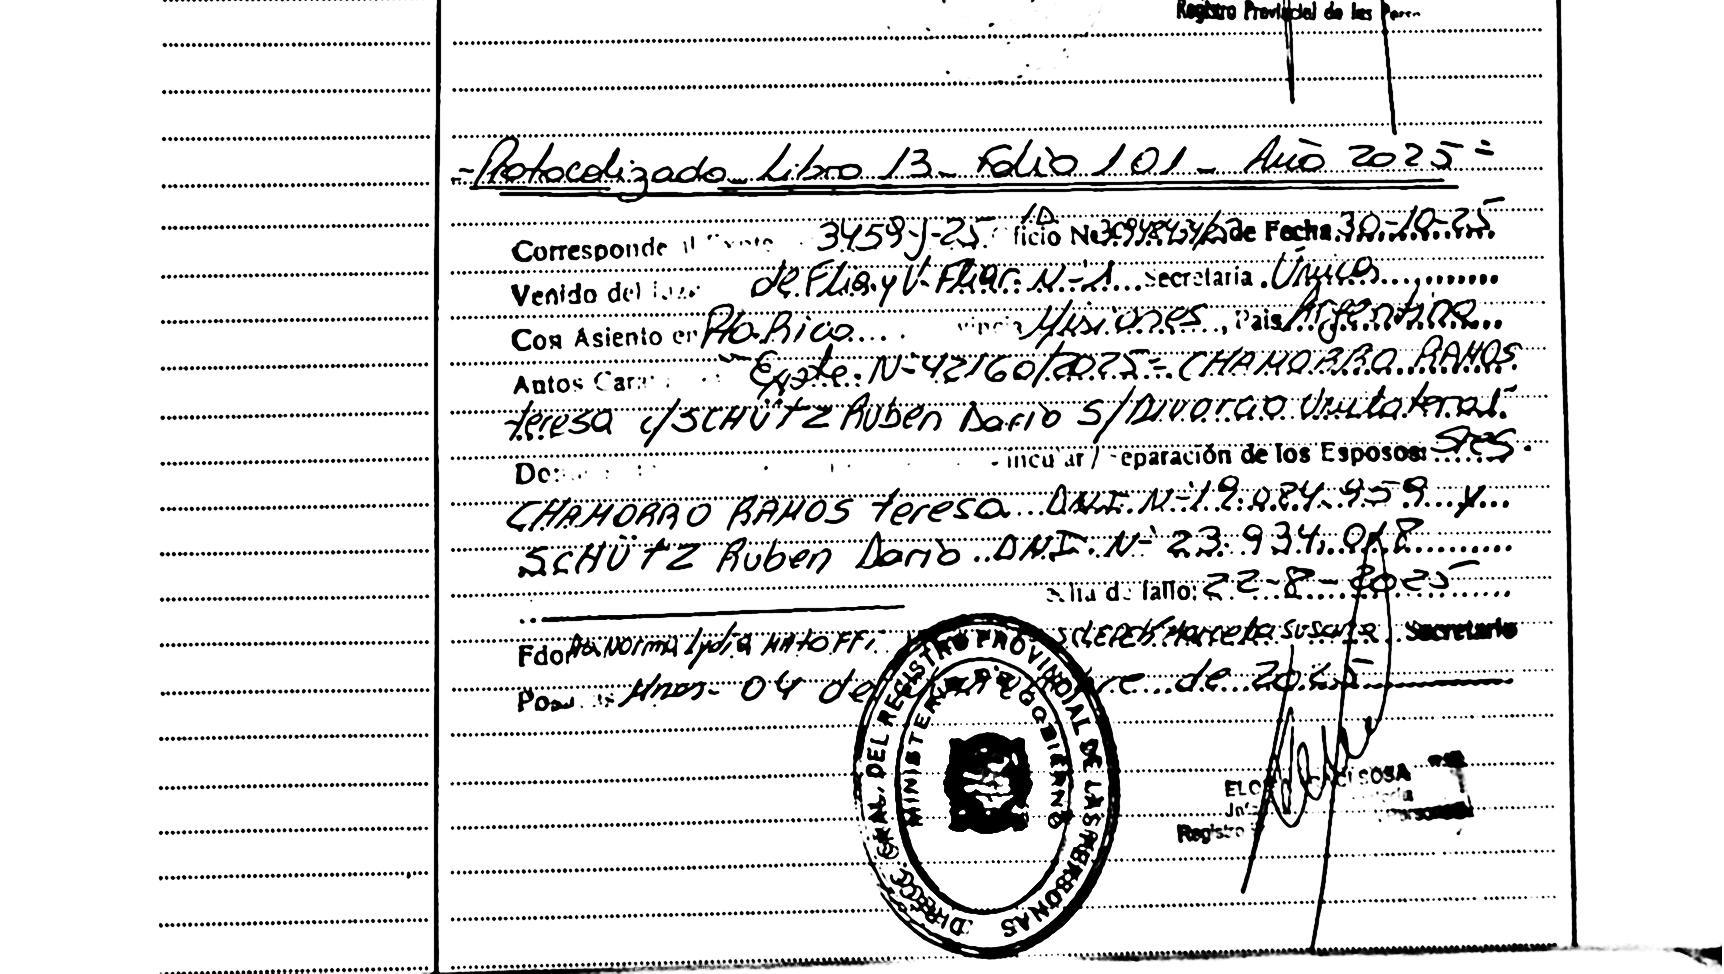 Registro Provincial de las
-Protocolizado_ Libro 13_ Folio 101 - Año 2025=
Corresponde al 3459-J-25 Nº de Fecha 30-10-25
Venido del de Flia y V. Fliar. N-1 Secretaria Única
Con Asiento en Pto. Rico Misiones, Pais Argentina
Autos Expte. N-42160/2025- CHAMORRO RAMOS
teresa c/SCHÜTZ Ruben Dario S/Divorcio Unilateral.
Separación de los Esposos: Sres.
CHAMORRO RAMOS teresa DNI. N-19.084.959 y
SCHÜTZ Ruben Dario DNI. N- 23.934.018
fallo: 22-8-2025
Fdo Norma Lydia Marcela Susana Secretario
Mnes- 04 de de 2025
DIRECC. GRAL. DEL REGISTRO PROVINCIAL DE LAS PERSONAS
MINISTERIO DE GOBIERNO
SOSA
Registro